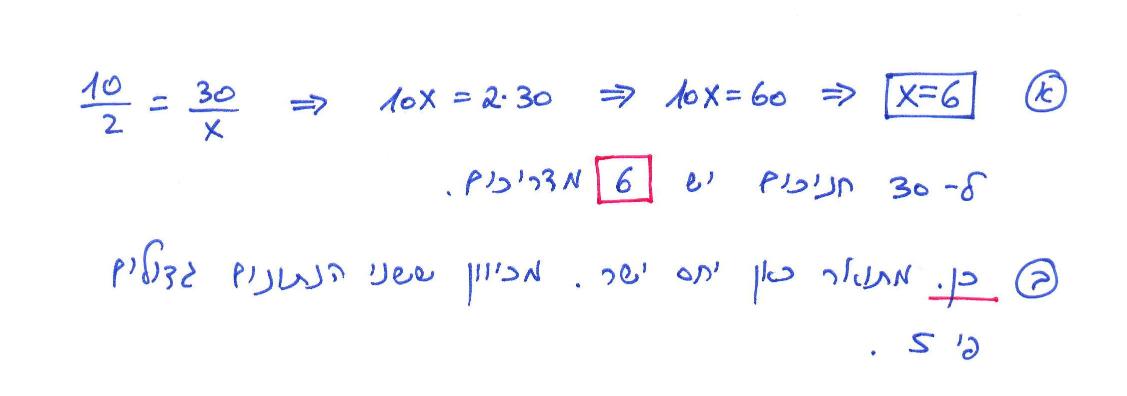 א 10/2 = 30/x ⇒ 10x = 2·30 ⇒ 10x = 60 ⇒ x=6
ל- 30 חניכים יש 6 מדריכים.
ב כן. מתואר כאן יחס ישר. מכיוון ששני הנתונים גדולים
פי 5.